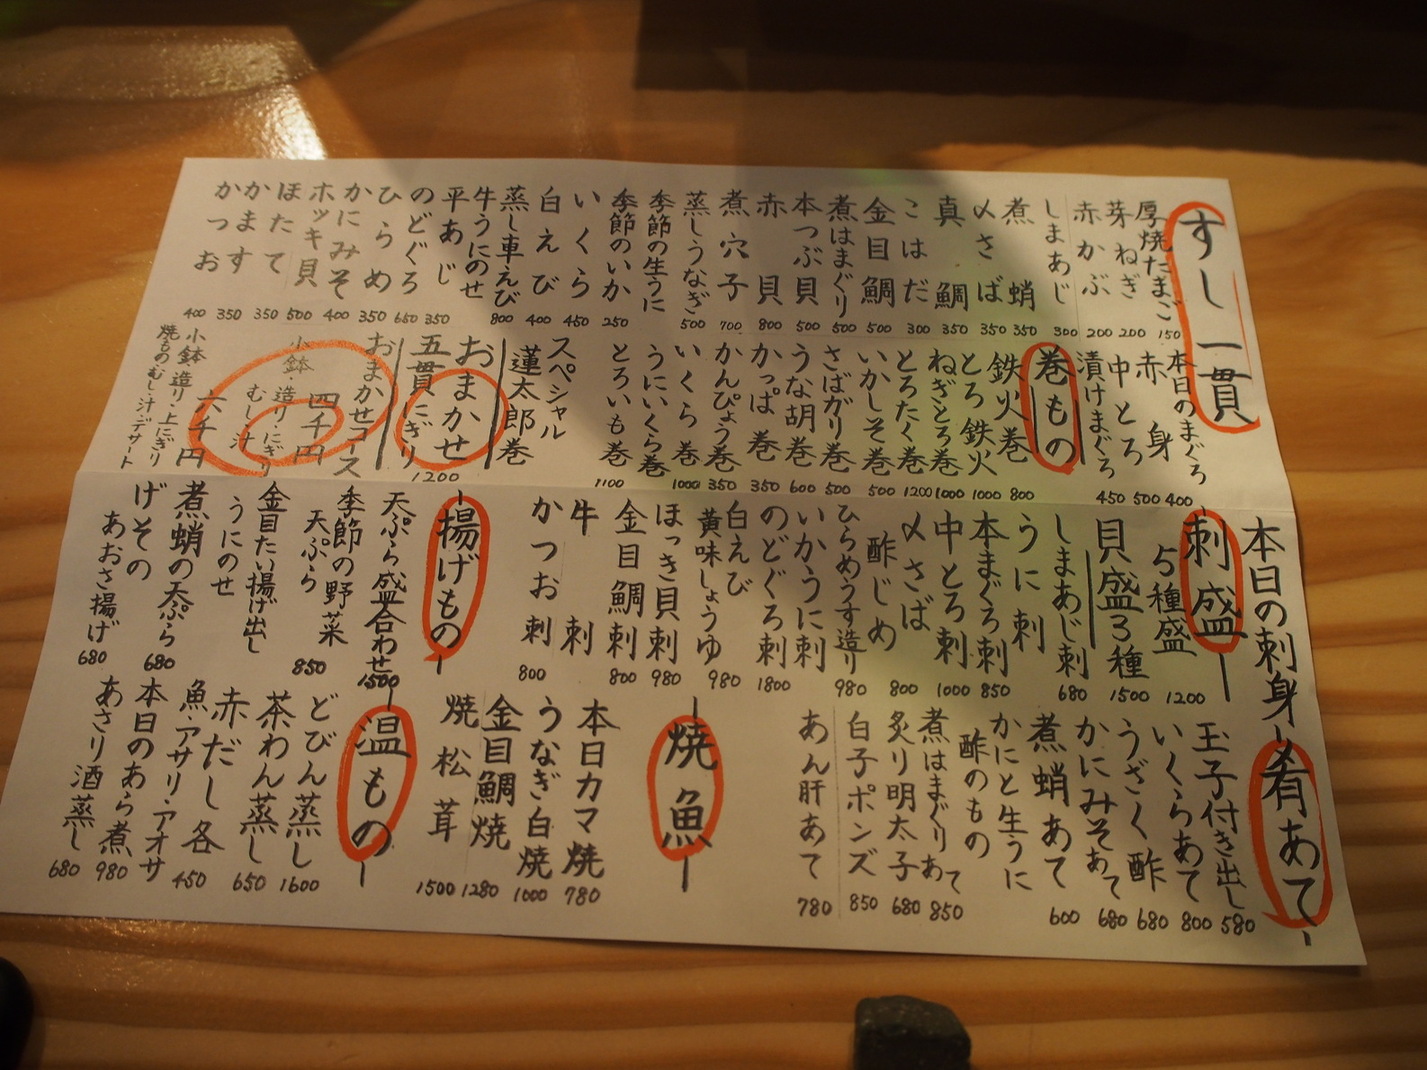 すし一貫
厚焼たまご 150
芽ねぎ 200
赤かぶ 200
しまあじ 300
煮蛸 350
〆さば 350
真鯛 350
こはだ 300
金目鯛 500
煮はまぐり 500
本つぶ貝 500
赤貝 800
煮穴子 700
蒸しうなぎ 500
季節の生うに
季節のいか 250
いくら 450
白えび 400
蒸し車えび 800
牛うにのせ
平あじ 350
のどぐろ 650
ひらめ 350
かにみそ 400
ホッキ貝 500
ほたて 350
かます 350
かつお 400
本日のまぐろ
赤身 400
中とろ 500
漬けまぐろ 450
巻もの
鉄火巻 800
とろ鉄火 1000
ねぎとろ巻 1000
とろたく巻 1200
いかしそ巻 500
さばガリ巻 500
うな胡巻 600
かっぱ巻 350
かんぴょう巻 350
いくら巻 1000
うにいくら巻
とろいも巻 1100
スペシャル
蓮太郎巻
おまかせ
五貫にぎり 1200
おまかせコース
四千円
小鉢・造り・にぎり
むし汁
六千円
小鉢・造り・上にぎり
焼もの・むし・汁デザート
本日の刺身
刺盛
5種盛 1200
貝盛3種 1500
しまあじ刺 680
うに刺
本まぐろ刺 850
中とろ刺 1000
〆さば 800
酢じめ
ひらめうす造り 980
いかうに刺
のどぐろ刺 1800
白えび
黄味しょうゆ 980
ほっき貝刺 980
金目鯛刺 800
牛刺
かつお刺 800
揚げもの
天ぷら盛合わせ 1500
季節の野菜
天ぷら 850
金目たい揚げ出し
うにのせ
煮蛸の天ぷら 680
げその
あおさ揚げ 680
肴あて
玉子付き出し 580
いくらあて 800
うざく酢 680
かにみそあて 680
煮蛸あて 600
かにと生うに
酢のもの
煮はまぐりあて 850
炙り明太子 680
白子ポンズ 850
あん肝あて 780
焼魚
本日カマ焼 780
うなぎ白焼 1000
金目鯛焼 1280
焼松茸 1500
温もの
どびん蒸し 1600
茶わん蒸し 650
赤だし各 450
魚・アサリ・アオサ
本日のあら煮 980
あさり酒蒸し 680